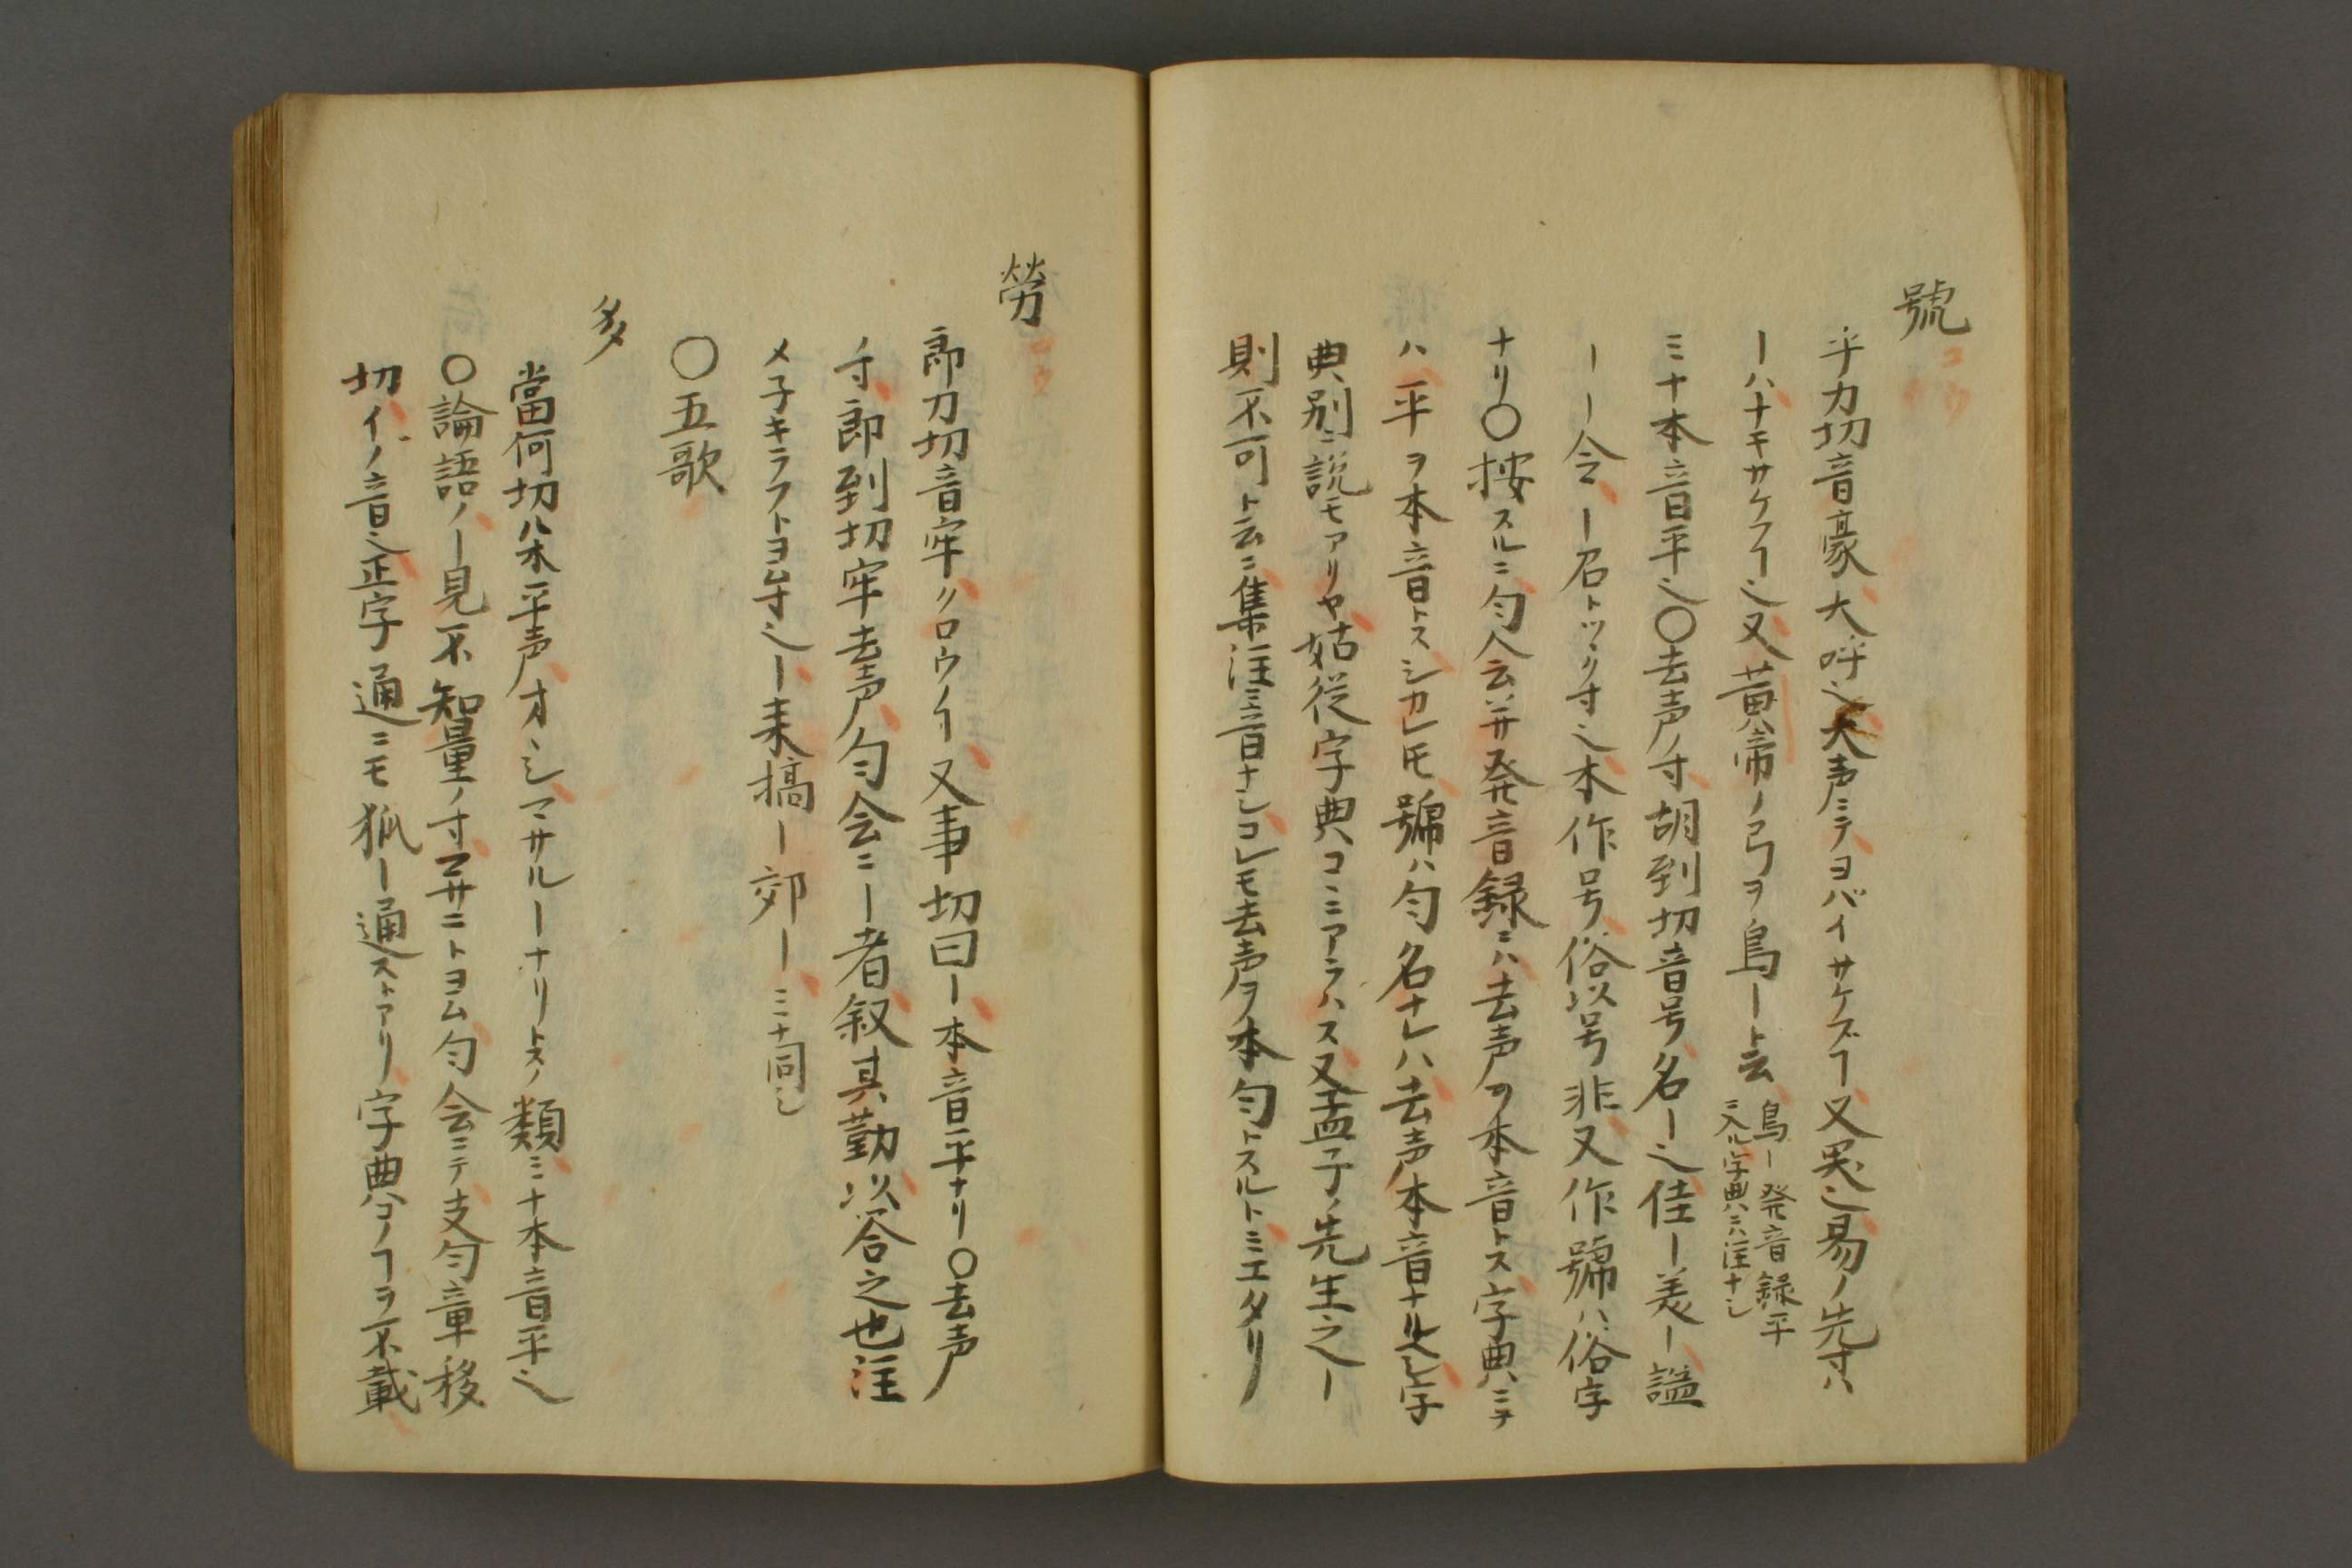 號
乎刀切音豪大呼也大声ニテヨバイサケブヿ又哭也易ノ先寸ハ
ーハナキサケフヿ也又黄帝ノ弓ヲ烏ート云烏ー発音録平ニ入ル字典ニハ注ナシ
ミナ本音平也〇去声ノ寸胡到切音号名ー也佳ー美ー謚
ーー令ー名トツヾク寸也本作号俗以号非又作號ハ俗字
ナリ〇按スルニ匀会云并発音録ニハ去声ヲ本音トス字典ハミナ
ハ平ヲ本音トスシカレ𪜈號ハ匀名ナレハ去声本音ナルヘシ字
典別ニ説モアリヤ姑従字典コヽニアラハス又孟子ノ先生之ー
則不可ト云ニ集注ニ音ナシコレモ去声ヲ本匀トスルトミエタリ
勞
郎刀切音牢〃ロウノヿ又事切曰ー本音平ナリ〇去声
ノ寸郎到切牢去声匀会ニー者叙其勤以答之也注
メ子キラフトヨム寸也ー来犒ー郊ーミナ同シ
〇五歌
多
當何切朵平声オヽシマサルーナリトスノ類ミナ本音平也
〇論語ノー見不知量ノ寸マサニトヨム匀会ニテ支匀章移
切イノ音也正字通ニモ狐ー通ストアリ字典コノヿヲ不載